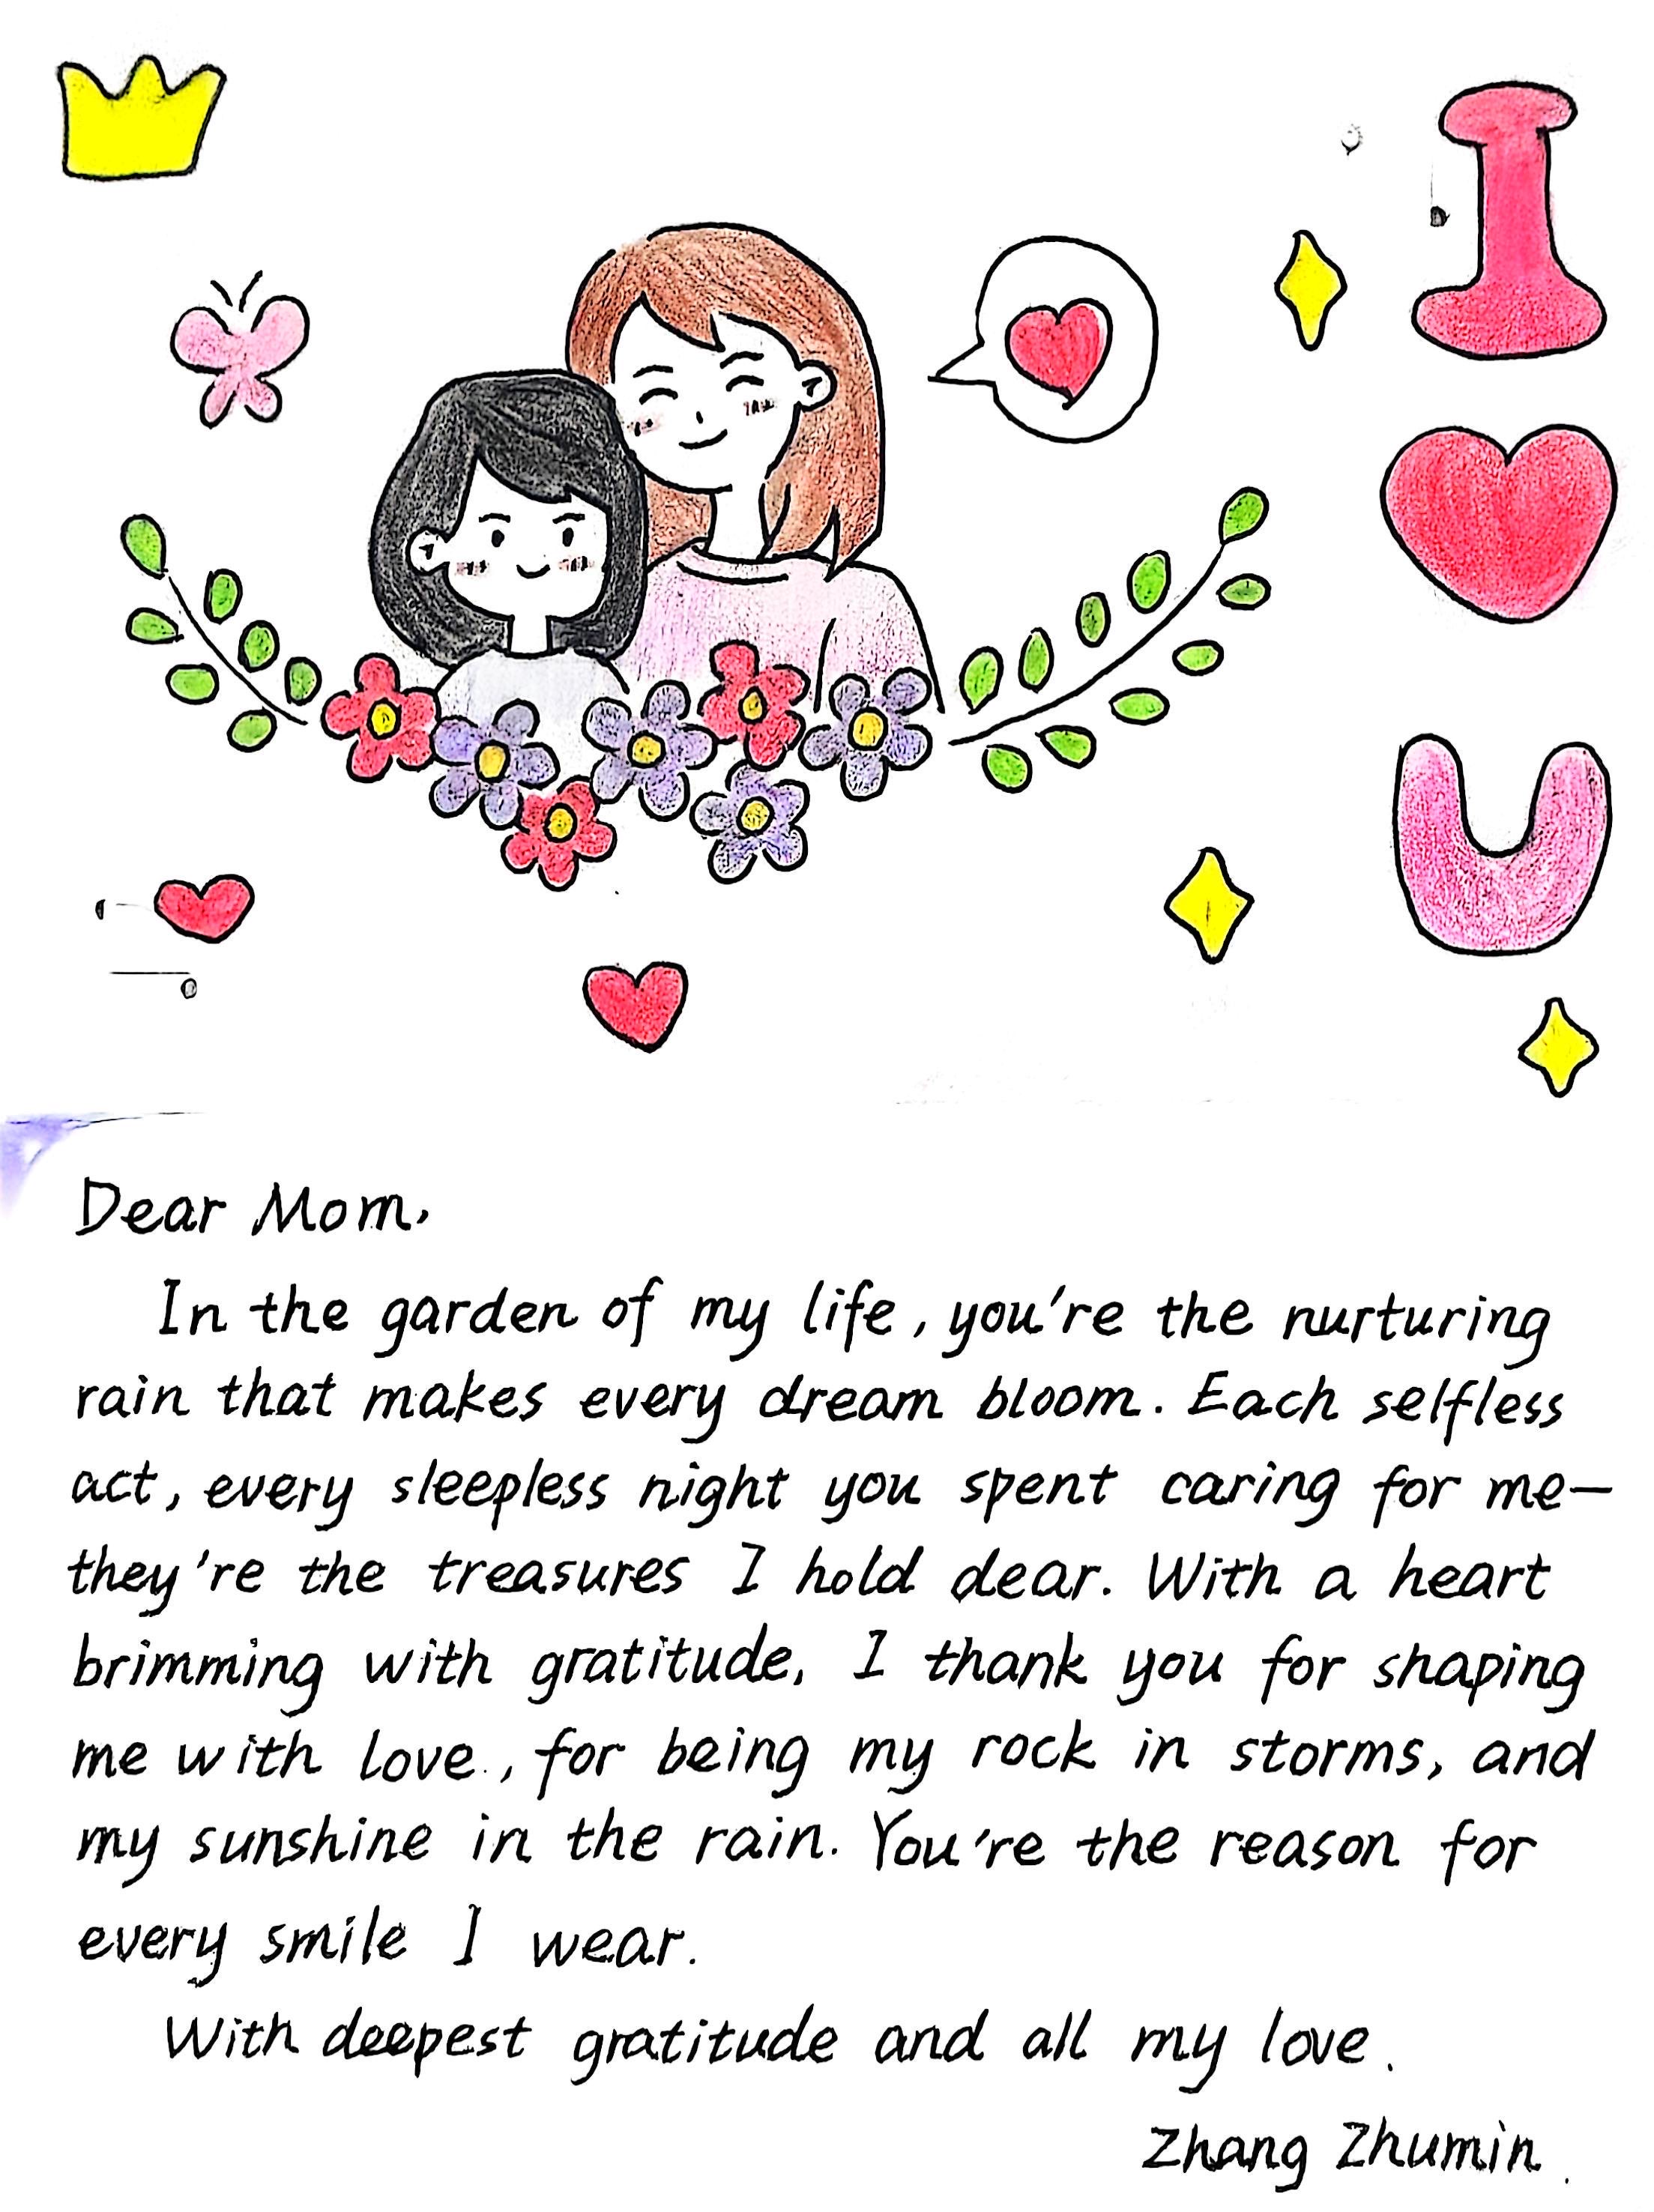 I
U
Dear Mom,
In the garden of my life, you're the nurturing
rain that makes every dream bloom. Each selfless
act, every sleepless night you spent caring for me—
they're the treasures I hold dear. With a heart
brimming with gratitude, I thank you for shaping
me with love, for being my rock in storms, and
my sunshine in the rain. You're the reason for
every smile I wear.
With deepest gratitude and all my love.
Zhang Zhumin.